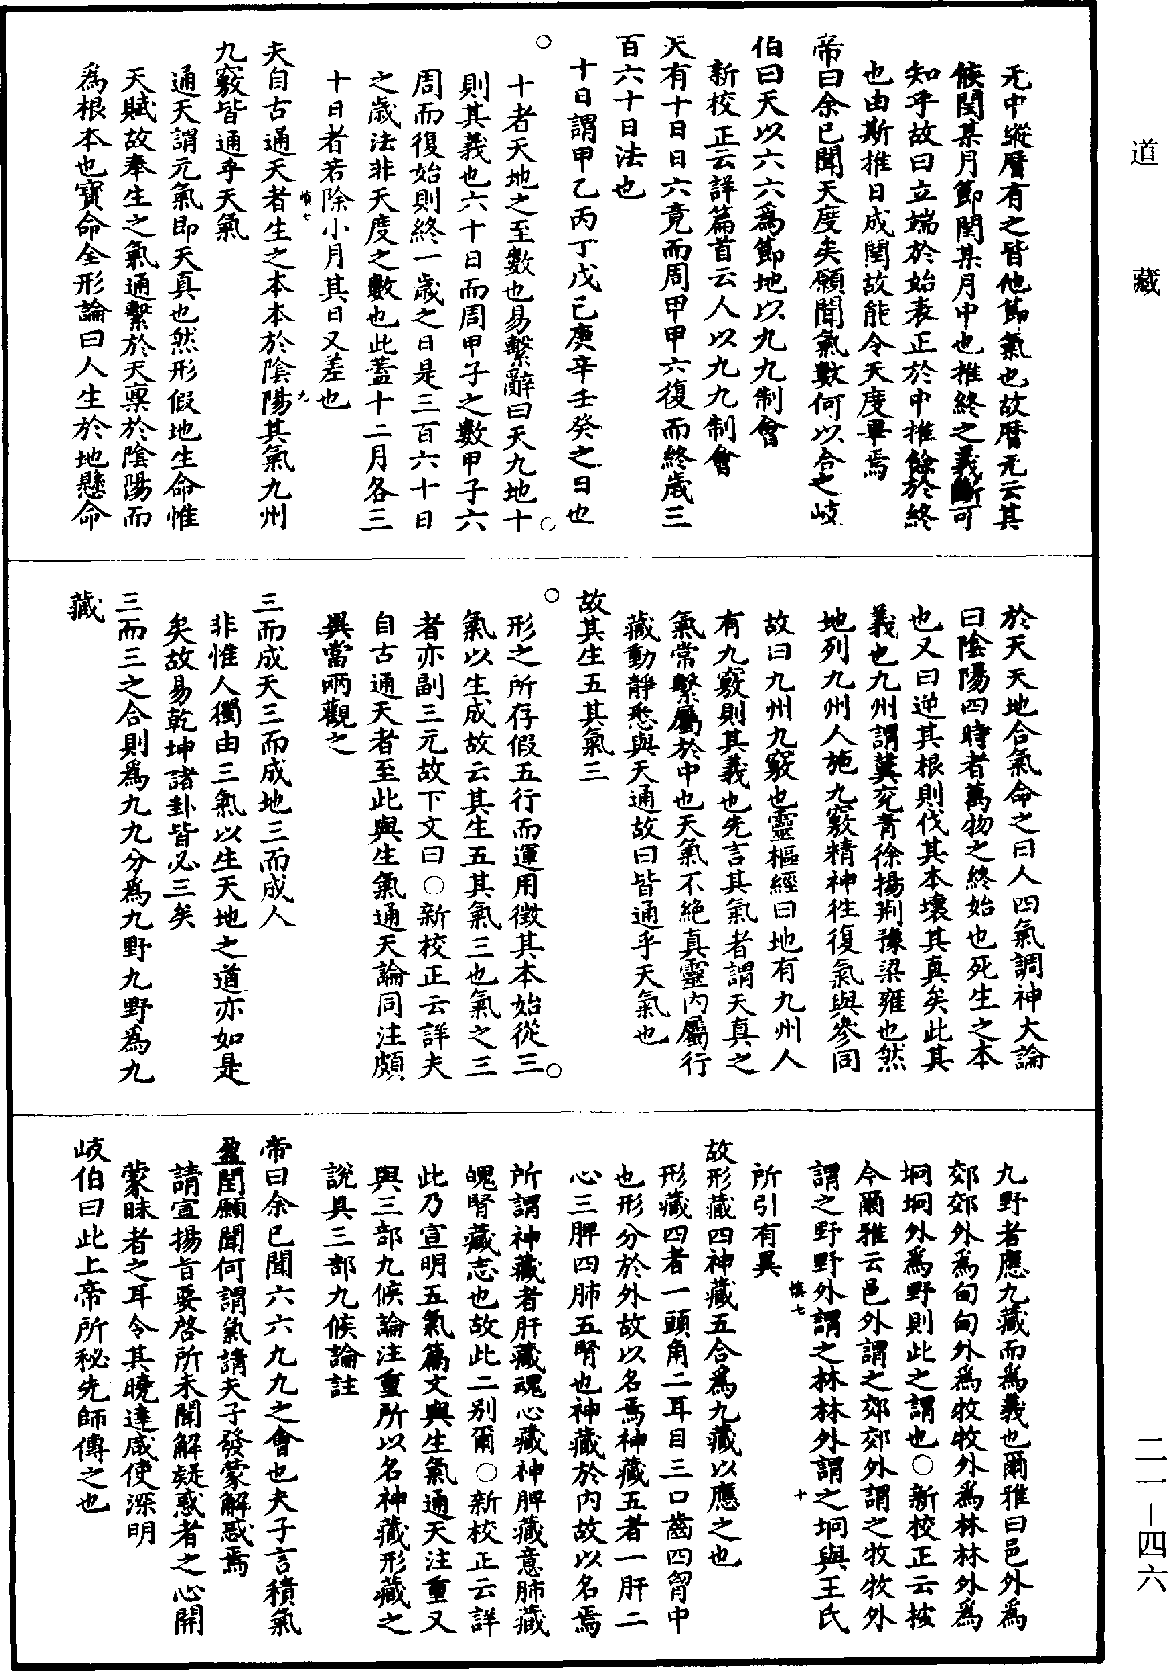 道藏
无中縱曆有之皆他節氣也故曆无云其
候閏某月節閏某月中也推終之義斷可
知乎故曰立端於始表正於中推餘於終
也由斯推日成閏故能令天度畢焉
帝曰余已聞天度矣願聞氣數何以合之岐
伯曰天以六六爲節地以九九制會
新校正云詳篇首云人以九九制會
天有十日日六竟而周甲甲六復而終歲三
百六十日法也
十日謂甲乙丙丁戊己庚辛壬癸之日也
十者天地之至數也易繫辭曰天九地十
則其義也六十日而周甲子之數甲子六
周而復始則終一歲之日是三百六十日
之歲法非天度之數也此蓋十二月各三
十日者若除小月其日又差也
夫自古通天者生之本本於陰陽其氣九州
九竅皆通乎天氣
通天謂元氣即天真也然形假地生命惟
天賦故奉生之氣通繫於天稟於陰陽而
爲根本也寶命全形論曰人生於地懸命
慎七
九
於天天地合氣命之曰人四氣調神大論
曰陰陽四時者萬物之終始也死生之本
也又曰逆其根則伐其本壞其真矣此其
義也九州謂冀兗青徐揚荆豫梁雍也然
地列九州人施九竅精神往復氣與參同
故曰九州九竅也靈樞經曰地有九州人
有九竅則其義也先言其氣者謂天真之
氣常繫屬於中也天氣不絕真靈内屬行
藏動靜悉與天通故曰皆通乎天氣也
故其生五其氣三
形之所存假五行而運用徵其本始從三
氣以生成故云其生五其氣三也氣之三
者亦副三元故下文曰○新校正云詳夫
自古通天者至此與生氣通天論同注頗
異當兩觀之
三而成天三而成地三而成人
非惟人獨由三氣以生天地之道亦如是
矣故易乾坤諸卦皆必三矣
三而三之合則爲九九分爲九野九野爲九
藏
九野者應九藏而爲義也爾雅曰邑外爲
郊郊外爲甸甸外爲牧牧外爲林林外爲
坰坰外爲野則此之謂也○新校正云按
今爾雅云邑外謂之郊郊外謂之牧牧外
謂之野野外謂之林林外謂之坰與王氏
所引有異
慎七
十
故形藏四神藏五合爲九藏以應之也
形藏四者一頭角二耳目三口齒四胷中
也形分於外故以名焉神藏五者一肝二
心三脾四肺五腎也神藏於内故以名焉
所謂神藏者肝藏魂心藏神脾藏意肺藏
魄腎藏志也故此二别爾○新校正云詳
此乃宣明五氣篇文與生氣通天注重又
與三部九候論注重所以名神藏形藏之
說具三部九候論註
帝曰余已聞六六九九之會也夫子言積氣
盈閏願聞何謂氣請夫子發蒙解惑焉
請宣揚旨要啓所未聞解疑惑者之心開
蒙昧者之耳令其曉達咸使深明
岐伯曰此上帝所秘先師傳之也
二一—四六